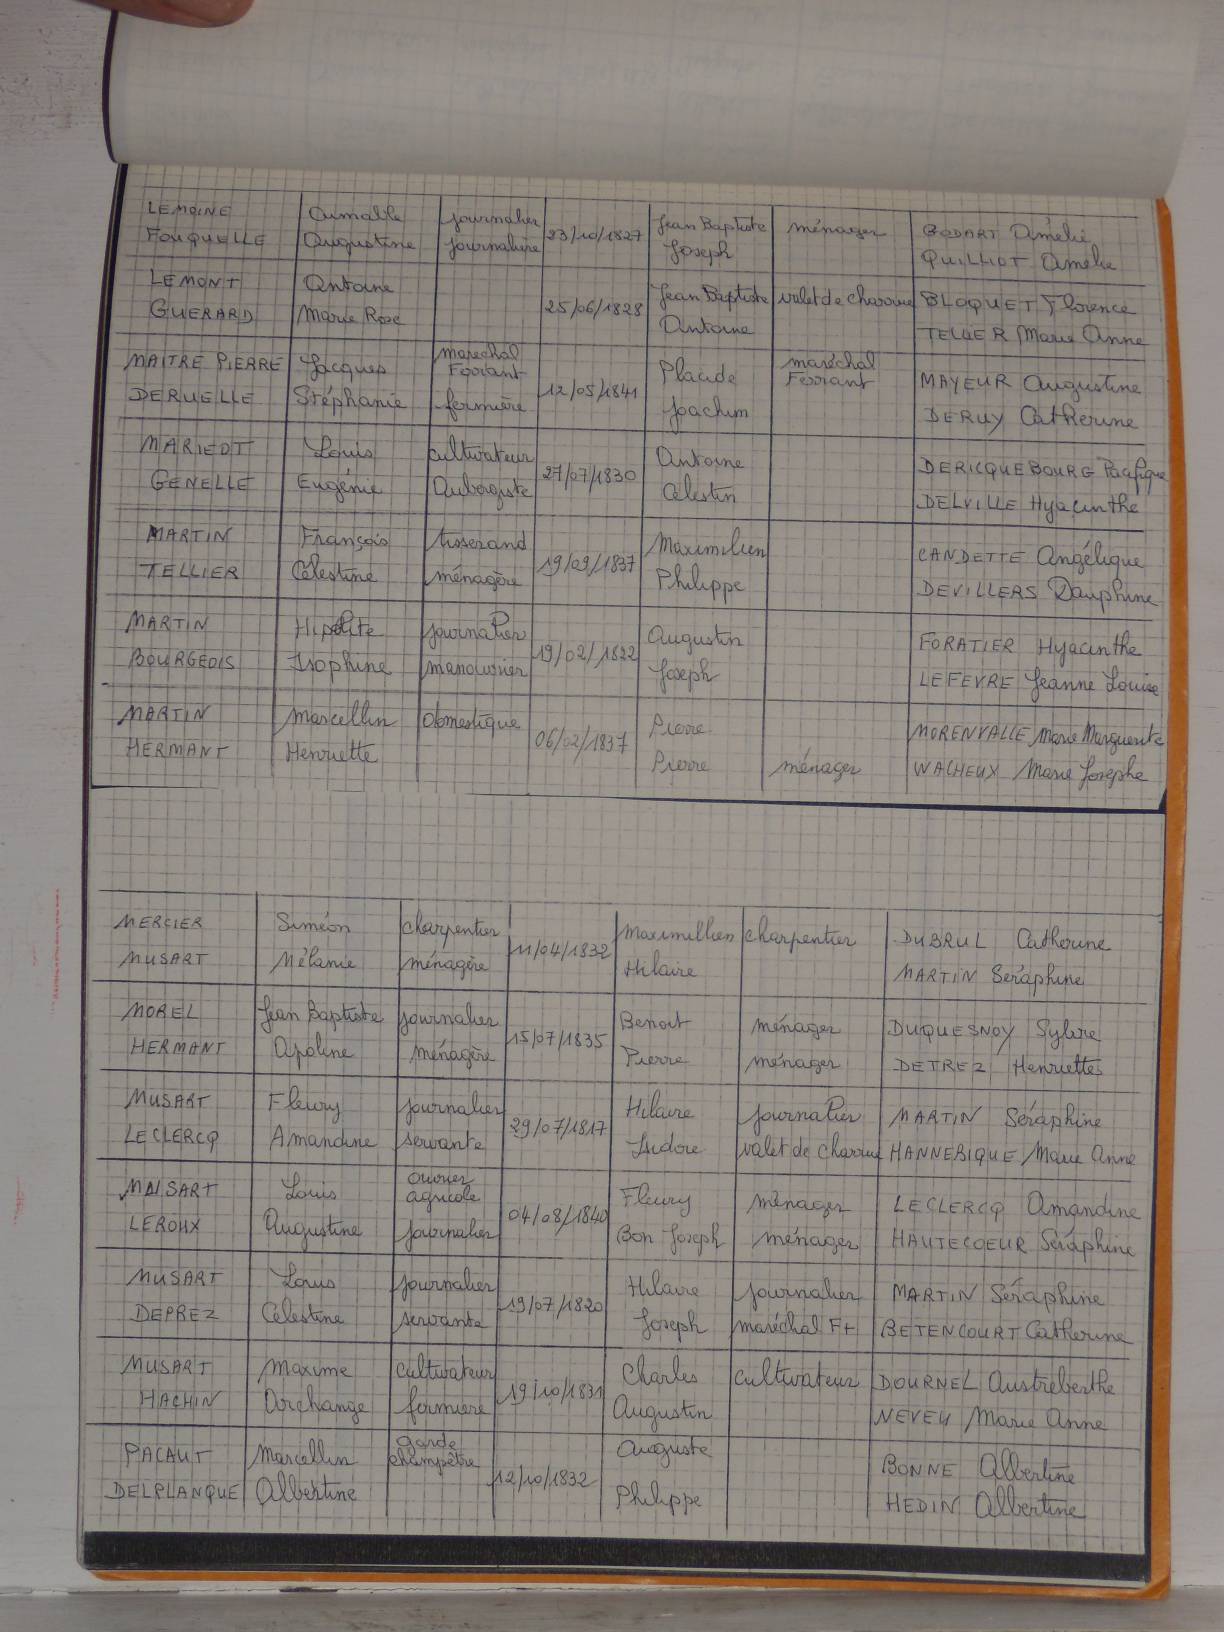 LEMOINE Aimable journalier 23/10/1827 Jean Baptiste ménager BODART Amélie
FOUQUELLE Augustine journalière Joseph QUILLIOT Amélie
LEMONT Antoine 25/06/1828 Jean Baptiste valet de charrue BLOQUET Florence
GUERARD Marie Rose Antoine TELLIER Marie Anne
MAITRE PIERRE Jacques maréchal Ferrant 12/05/1841 Placide maréchal Ferrant MAYEUR Augustine
DERUELLE Stéphanie fermière Joachim DERUY Catherine
MARIEDT Louis cultivateur 27/07/1830 Antoine DERICQUEBOURG Pacifique
GENELLE Eugénie Aubergiste Célestin DELVILLE Hyacinthe
MARTIN François tisserand 19/09/1837 Maximilien CANDETTE Angélique
TELLIER Célestine ménagère Philippe DEVILLERS Dauphine
MARTIN Hipolite journalier 19/02/1822 Augustin FORATIER Hyacinthe
BOURGEOIS Isophine manouvrier Joseph LEFEVRE Jeanne Louise
MARTIN Marcellin domestique 06/02/1837 Pierre MORENVALLE Marie Marguerite
HERMANT Henriette Pierre ménager WACHEUX Marie Josephe
MERCIER Siméon charpentier 11/04/1832 Maximillien charpentier DUBRUL Catherine
MUSART Mélanie ménagère Hilaire MARTIN Seraphine
MOREL Jean Baptiste journalier 15/07/1835 Benoit ménager DUQUESNOY Sylvie
HERMANT Apoline ménagère Pierre ménager DETREZ Henriettes
MUSART Fleury journalier 29/07/1817 Hilaire journalier MARTIN Séraphine
LECLERCQ Amandine servante Isidore valet de charrue HANNEBIQUE Marie Anne
MUSART Louis ouvrier agricole 04/08/1840 Fleury ménager LECLERCQ Amandine
LEROUX Augustine journalier Bon Joseph ménager HAUTECOEUR Séraphine
MUSART Louis journalier 19/07/1820 Hilaire journalier MARTIN Séraphine
DEPREZ Célestine servante Joseph maréchal Ft BETENCOURT Catherine
MUSART Maxime cultivateur 19/10/1831 Charles cultivateur DOURNEL Austreberthe
HACHIN Archange fermière Augustin NEVEU Marie Anne
PACAUT Marcellin garde champêtre 12/10/1832 Auguste BONNE Albertine
DELPLANQUE Albertine Philippe HEDIN Albertine